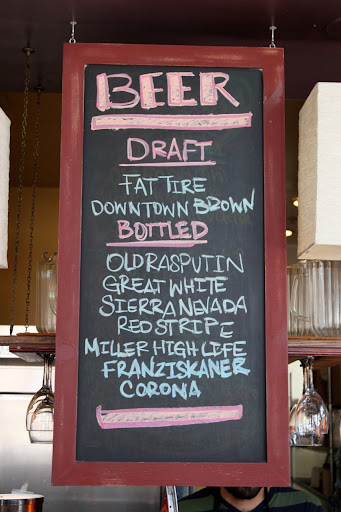 BEER
DRAFT
FAT TIRE
DOWNTOWN BROWN
BOTTLED
OLD RASPUTIN
GREAT WHITE
SIERRA NEVADA
RED STRIPE
MILLER HIGH LIFE
FRANZISKANER
CORONA